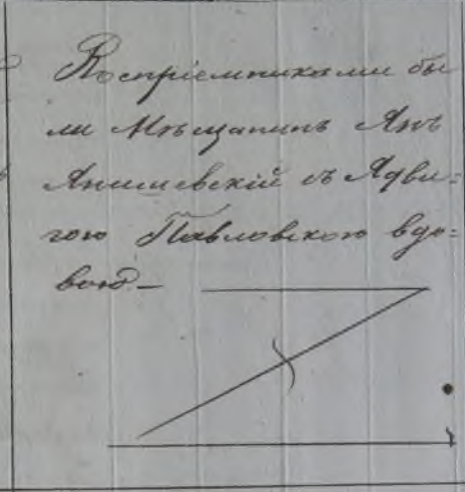 Воспріемниками бы
ли Мѣщанинъ Янъ
Янишевскій съ Ядви=
гою Павловскою вдо=
вою —